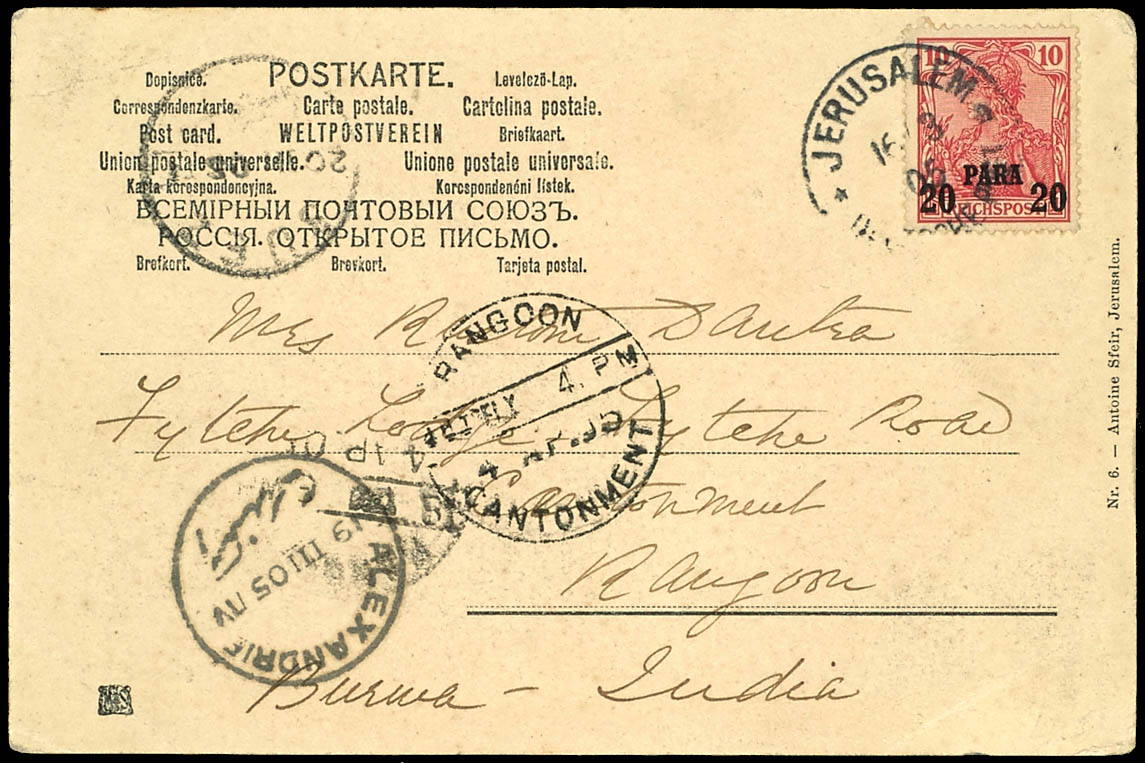 POSTKARTE.
Dopisnice. Levelezö-Lap.
Correspondenzkarte. Carte postale. Cartolina postale.
Post card. WELTPOSTVEREIN Briefkaart.
Union postale universelle. Unione postale universale.
Karta korespondencyjna. Korespondenéni listek.
ВСЕМІРНЫЙ ПОЧТОВЫЙ СОЮЗЪ.
РОССІЯ. ОТКРЫТОЕ ПИСЬМО.
Brefkort. Brevkort. Tarjeta postal.
10 10
PARA
20 20
REICHSPOST
* JERUSALEM *
DEUTSCHE
Mrs
Fytche Lodge, Fytche Road
Cantonment
Rangoon
Burma - India
RANGOON
4. PM
4 AP.05
CANTONMENT
ALEXANDRIE
19 III 05
Nr. 6. — Antoine Sfeir, Jerusalem.